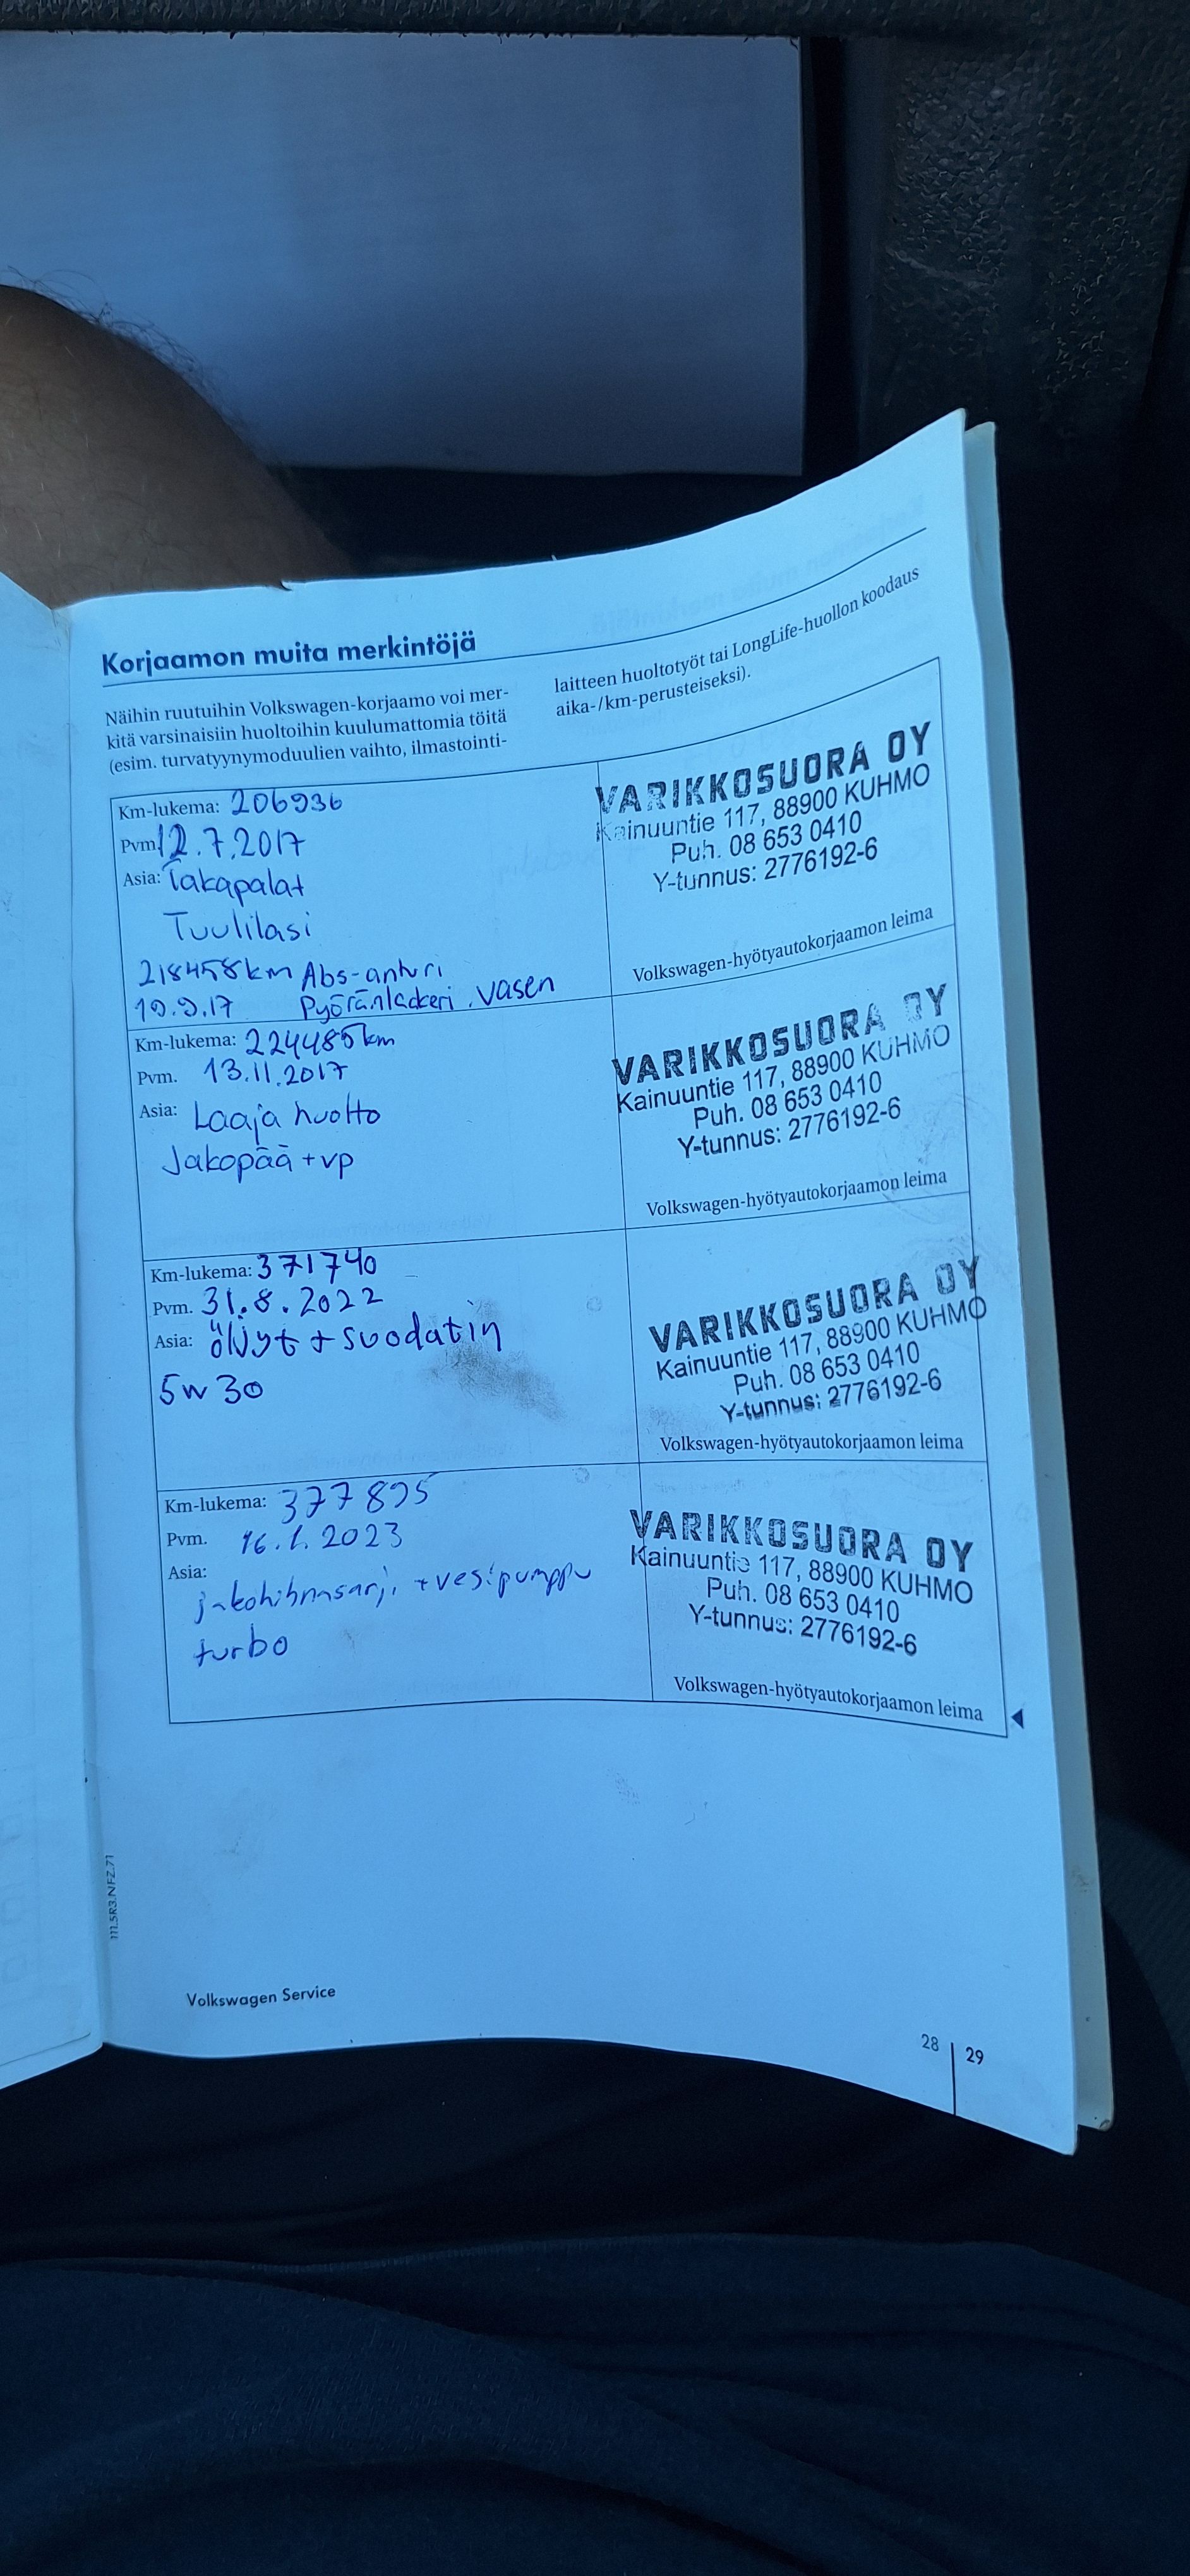 Korjaamon muita merkintöjä
Näihin ruutuihin Volkswagen-korjaamo voi mer-
kitä varsinaisiin huoltoihin kuulumattomia töitä
(esim. turvatyynymoduulien vaihto, ilmastointi-
laitteen huoltotyöt tai LongLife-huollon koodaus
aika-/km-perusteiseksi).
Km-lukema: 206936
Pvm. 12.7.2017
Asia: Takapalat
Tuulilasi
218458km Abs-anturi
19.9.17 Pyöränlaakeri, vasen
VARIKKOSUORA OY
Kainuuntie 117, 88900 KUHMO
Puh. 08 653 0410
Y-tunnus: 2776192-6
Volkswagen-hyötyautokorjaamon leima
Km-lukema: 224485km
Pvm. 13.11.2017
Asia: Laaja huolto
Jakopää + vp
VARIKKOSUORA OY
Kainuuntie 117, 88900 KUHMO
Puh. 08 653 0410
Y-tunnus: 2776192-6
Volkswagen-hyötyautokorjaamon leima
Km-lukema: 371740
Pvm. 31.8.2022
Asia: öljyt + suodatin
5w30
VARIKKOSUORA OY
Kainuuntie 117, 88900 KUHMO
Puh. 08 653 0410
Y-tunnus: 2776192-6
Volkswagen-hyötyautokorjaamon leima
Km-lukema: 377895
Pvm. 16.1.2023
Asia:
jakohihnasarja + vesipumppu
turbo
VARIKKOSUORA OY
Kainuuntie 117, 88900 KUHMO
Puh. 08 653 0410
Y-tunnus: 2776192-6
Volkswagen-hyötyautokorjaamon leima
111.5R3.NFZ.71
Volkswagen Service
28 | 29